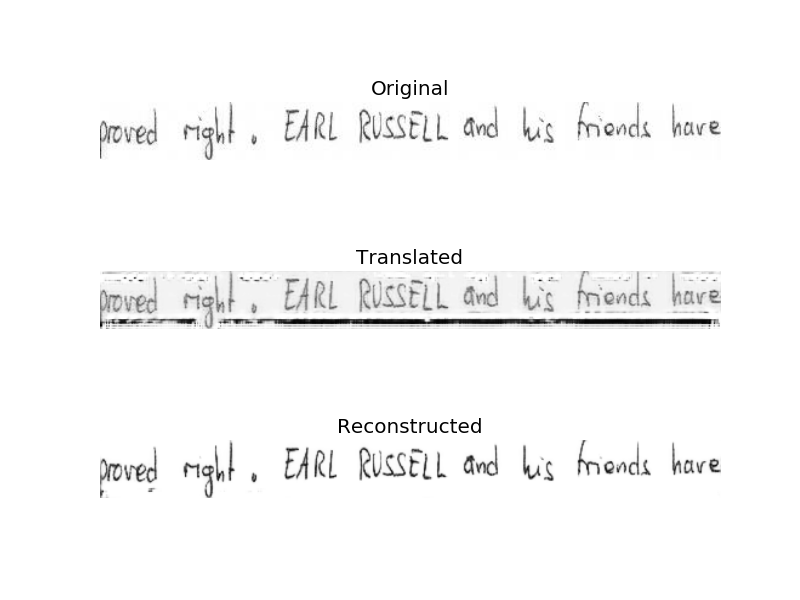 Original
proved right . EARL RUSSELL and his friends have
Translated
proved right . EARL RUSSELL and his friends have
Reconstructed
proved right . EARL RUSSELL and his friends have